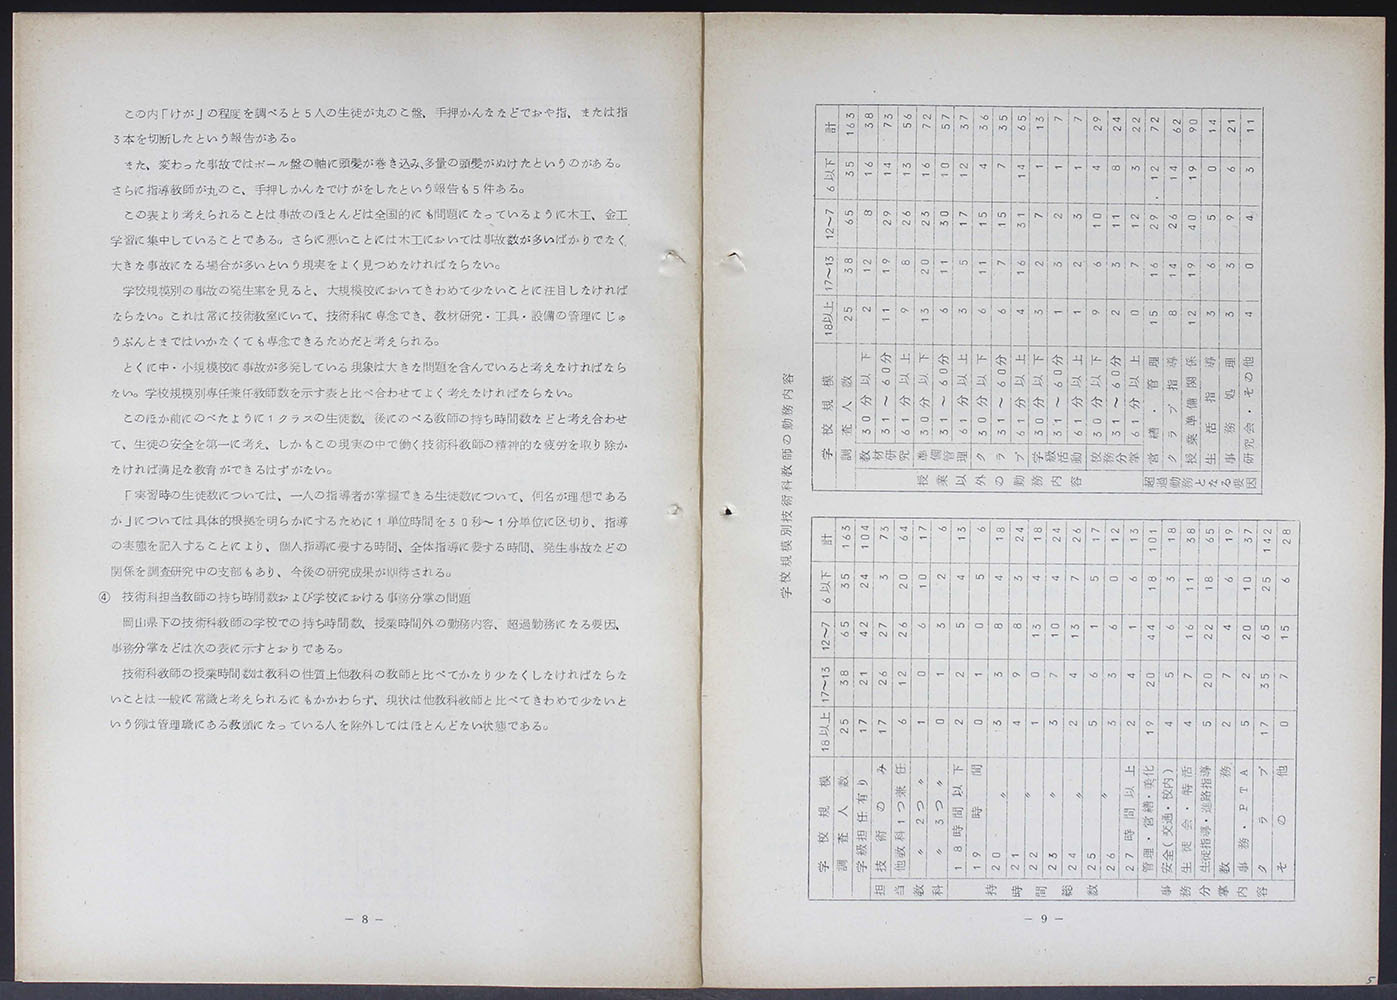 この内「けが」の程度を調べると5人の生徒が丸のこ盤、手押かんななどでおや指、または指
3本を切断したという報告がある。
また、変わった事故ではボール盤の軸に頭髪が巻き込み、多量の頭髪がぬけたというのがある。
さらに指導教師が丸のこ、手押しかんなでけがをしたという報告も5件ある。
この表より考えられることは事故のほとんどは全国的にも問題になっているように木工、金工
学習に集中していることである。さらに悪いことには木工においては事故数が多いばかりでなく、
大きな事故になる場合が多いという現実をよく見つめなければならない。
学校規模別の事故の発生率を見ると、大規模校においてきわめて少ないことに注目しなければ
ならない。これは常に技術教室にいて、技術科に専念でき、教材研究・工具・設備の管理にじゅ
うぶんとまではいかなくても専念できるためだと考えられる。
とくに中・小規模校に事故が多発している現象は大きな問題を含んでいると考えなければなら
ない。学校規模別専任兼任教師数を示す表と比べ合わせてよく考えなければならない。
このほか前にのべたように1クラスの生徒数、後にのべる教師の持ち時間数などと考え合わせ
て、生徒の安全を第一に考え、しかもこの現実の中で働く技術科教師の精神的な疲労を取り除か
なければ満足な教育ができるはずがない。
「実習時の生徒数については、一人の指導者が掌握できる生徒数について、何名が理想である
か」については具体的根拠を明らかにするために1単位時間を30秒〜1分単位に区切り、指導
の実態を記入することにより、個人指導に要する時間、全体指導に要する時間、発生事故などの
関係を調査研究中の支部もあり、今後の研究成果が期待される。
④ 技術科担当教師の持ち時間数および学校における事務分掌の問題
岡山県下の技術科教師の学校での持ち時間数、授業時間外の勤務内容、超過勤務になる要因、
事務分掌などは次の表に示すとおりである。
技術科教師の授業時間数は教科の性質上他教科の教師と比べてかなり少なくしなければならな
いことは一般に常識と考えられるにもかかわらず、現状は他教科教師と比べてきわめて少ないと
いう例は管理職にある教頭になっている人を除外してはほとんどない状態である。
— 8 —
学校規模別技術科教師の勤務内容
学校規模 18以上 17〜13 12〜7 6以下 計
調査人数 25 38 65 35 163
学級担任有り 17 21 42 24 104
担当教科 技術のみ 17 26 27 3 73
他教科1つ兼任 6 12 26 20 64
〃 2つ〃 1 0 6 10 17
〃 3つ〃 0 1 3 2 6
持時間総数 18時間以下 2 2 5 4 13
19時間 0 1 0 5 6
20 〃 3 3 8 4 18
21 4 9 8 3 24
22 〃 1 0 13 4 18
23 〃 3 7 10 4 24
24 2 4 13 7 26
25 〃 5 6 1 5 17
26 〃 3 3 6 0 12
27時間以上 2 4 1 6 13
事務分掌内容 管理・営繕・美化 19 20 44 18 101
安全(交通・校内) 4 5 6 3 18
生徒会・特活 4 7 16 11 38
生徒指導・進路指導 5 20 22 18 65
教務 2 7 4 6 19
事務・PTA 5 2 20 10 37
クラブ 17 35 65 25 142
その他 0 7 15 6 28
学校規模 18以上 17〜13 12〜7 6以下 計
調査人数 25 38 65 35 163
授業以外の勤務内容 教材研究 30分以下 2 12 8 16 38
31〜60分 11 19 29 14 73
61分以上 9 8 26 13 56
準備管理 30分以下 13 20 23 16 72
31〜60分 6 11 30 10 57
61分以上 3 5 17 12 37
クラブ 30分以下 6 11 15 4 36
31〜60分 6 7 15 7 35
61分以上 4 16 31 14 65
学級活動 30分以下 3 2 7 1 13
31〜60分 1 3 2 1 7
61分以上 1 2 3 1 7
校務分掌 30分以下 9 6 10 4 29
31〜60分 2 3 11 8 24
61分以上 0 7 12 3 22
超過勤務となる要因 営繕・管理 15 16 29 12 72
クラブ指導 8 14 26 14 62
授業準備関係 12 19 40 19 90
生活指導 3 6 5 0 14
事務処理 3 3 9 6 21
研究会・その他 4 0 4 3 11
— 9 —
5